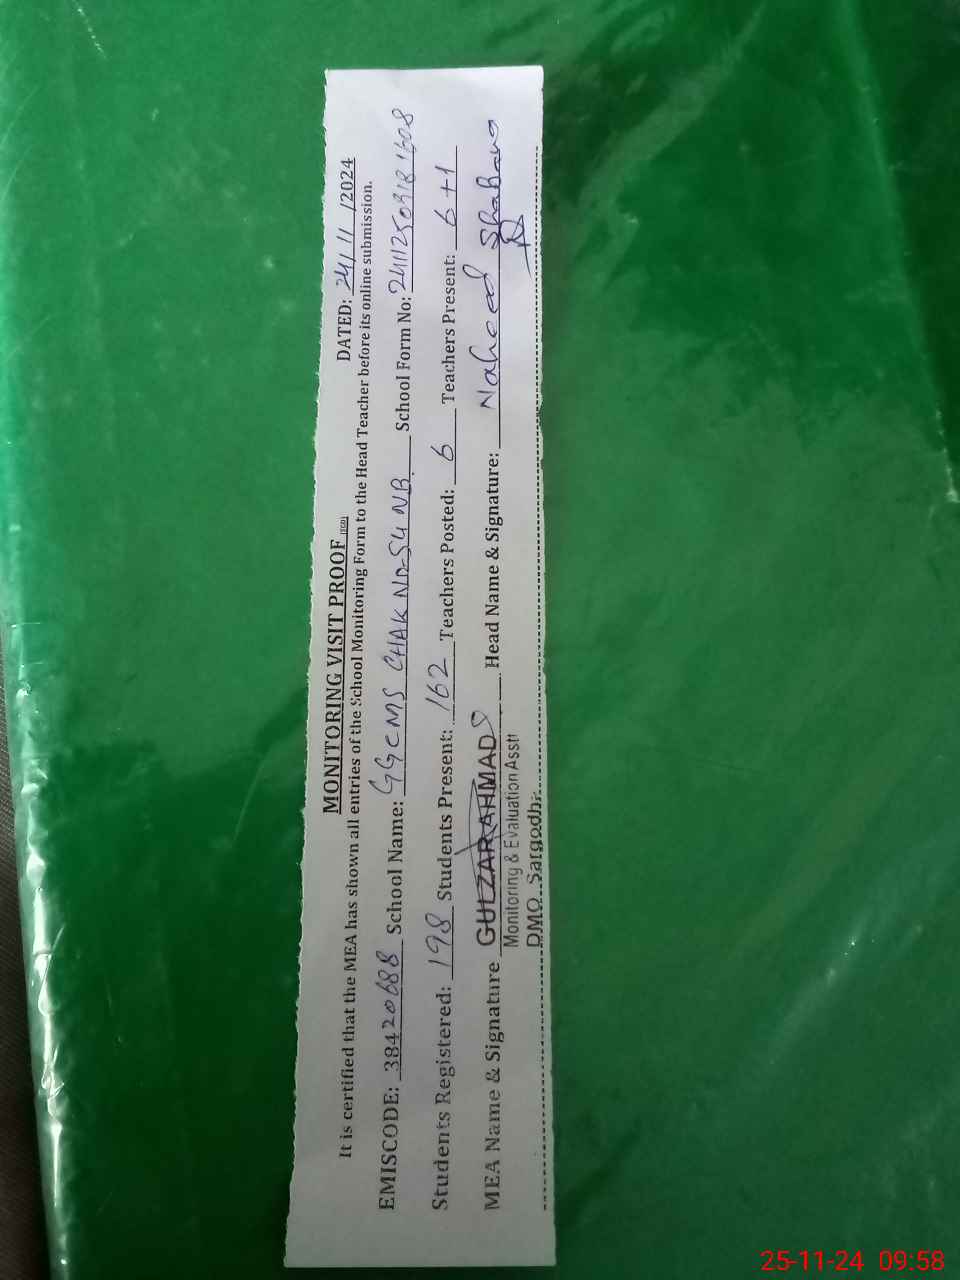 MONITORING VISIT PROOF
DATED: 24/11/2024
It is certified that the MEA has shown all entries of the School Monitoring Form to the Head Teacher before its online submission.
EMISCODE: 38420688 School Name: GGCMS CHAK NO-54 NB. School Form No: 24112509181608
Students Registered: 198 Students Present: 162 Teachers Posted: 6 Teachers Present: 6+1
MEA Name & Signature GULZAR AHMAD Head Name & Signature: Naheed Shabana
Monitoring & Evaluation Asstt
DMO. Sargodha
25-11-24 09:58